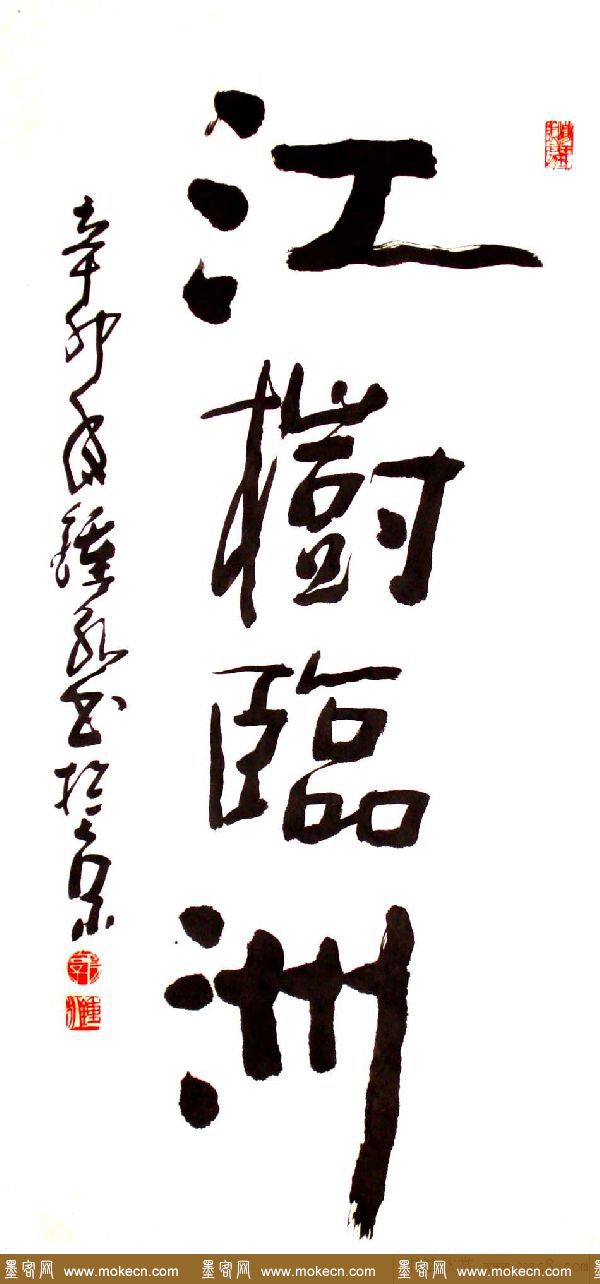 江樹臨洲
辛卯年鍾永書於京
墨客网 www.mokecn.com 墨客网 www.mokecn.com 墨客网 www.mokecn.com